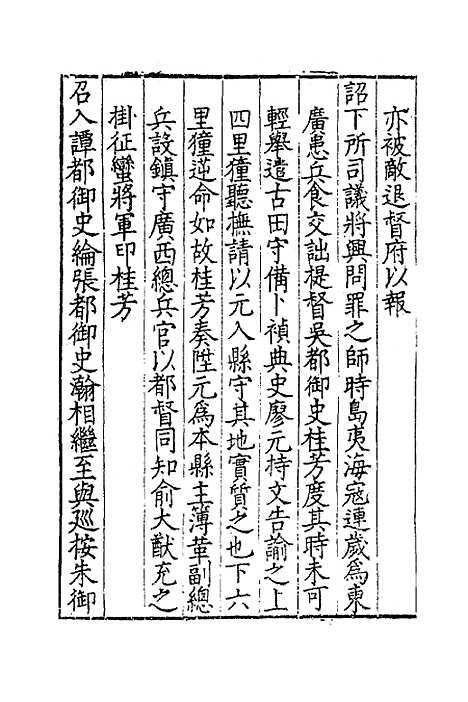 亦被敵退督府以報
詔下所司議將興問罪之師時島夷海寇連歲爲東
廣患兵食交詘提督吳都御史桂芳度其時未可
輕舉遣古田守備卜禎典史廖元持文告諭之上
四里獞聽撫請以元入縣守其地實質之也下六
里獞逆命如故桂芳奏陞元爲本縣主簿革副總
兵設鎮守廣西總兵官以都督同知俞大猷充之
掛征蠻將軍印桂芳
召入譚都御史綸張都御史瀚相繼至與廵按朱御